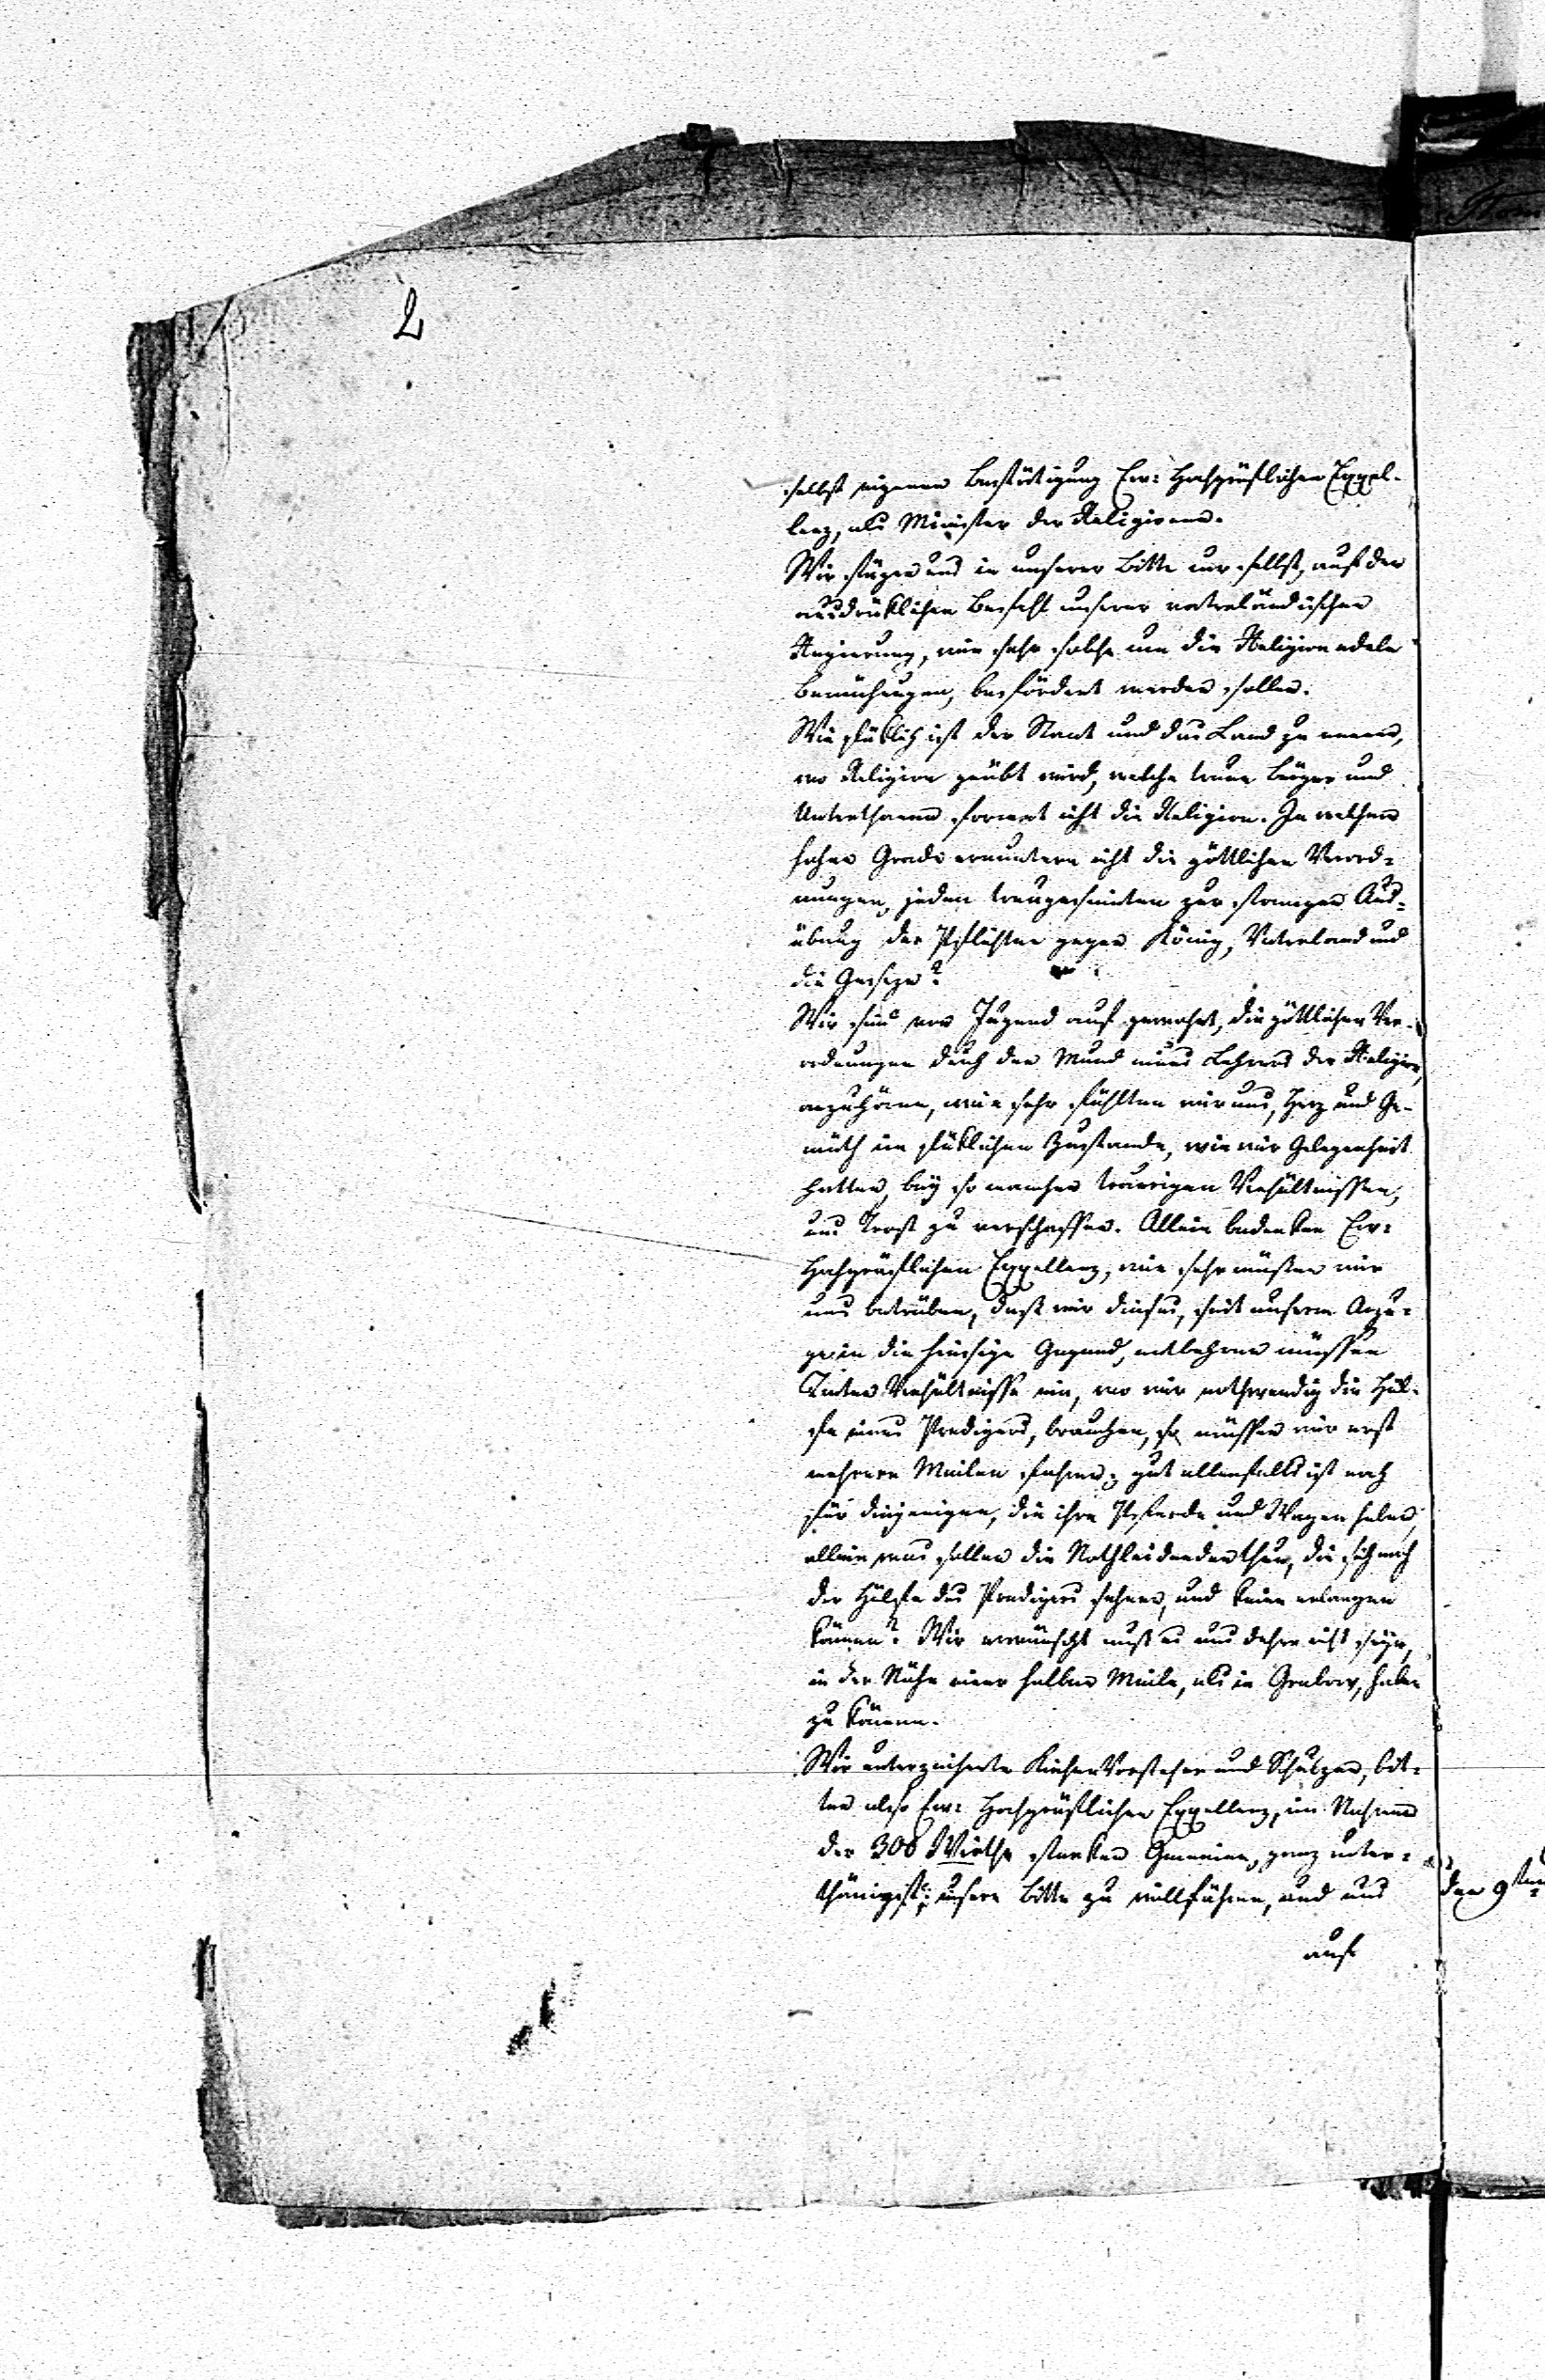 2
selbst eigenen Bestätigung Ew: Hochgräflichen Exzel-
lenz, als Minister der Religionen.
Wir stüzen uns in unserer Bitte nur selbst, auf den
ausdrüklichen Befehl unserer vaterländischen
Regierung, wie sehr solche um die Religion edele
Bemühungen, befördert werden sollen.
Wie glüklich ist der Staat und das Land zu nennen,
wo Religion geübt wird, welche treue Bürger und
Unterthanen formet nicht die Religion. In welchem
hohen Grade ermuntern nicht die göttlichen Verord-
nungen, jeden treugesinnten zur strengen Aus-
übung der Pflichten gegen König, Vaterland und
die Geseze?
Wir sind von Jugend auf gewohnt, die göttlichen Ver-
ordnungen durch den Mund eines Lehrers der Religion,
anzuhören, wie sehr fühlten wir uns, Herz und Ge-
müth im glüklichen Zustande, wie wir Gelegenheit
hatten, bey so manchen traurigen Verhältnissen,
uns Trost zu verschaffen. Allein bedenken Ew:
Hochgräflichen Exzellenz, wie sehr müssen wir
uns betrüben, daß wir dieses, seit unserm Anzu-
ge in die hiesige Gegend, entbehren müssen
Treten Verhältnisse ein, wo wir nothwendig die Hül-
fe eines Predigers, brauchen, so müssen wir erst
mehrere Meilen fahren; gut allenfalls ist noch
für diejenigen, die ihre Pferde und Wagen haben,
allein was sollen die Nothleidenden thun, die sich nach
der Hülfe des Predigers sehnen, und keine erlangen
können? Wie erwünscht muß es uns daher nicht seyn,
in der Nähe einer halben Meile, als in Grabow, haben
zu können.
Wir unterzeichnete Kirchen Vorsteher und Schulzen, bit-
ten also Ew: Hochgräflichen Exzellenz, im Nahmen
der 300 Wirthe starken Gemeine, ganz unter-
thänigst: unsere Bitte zu willfahren, und uns
auf
den 9ten